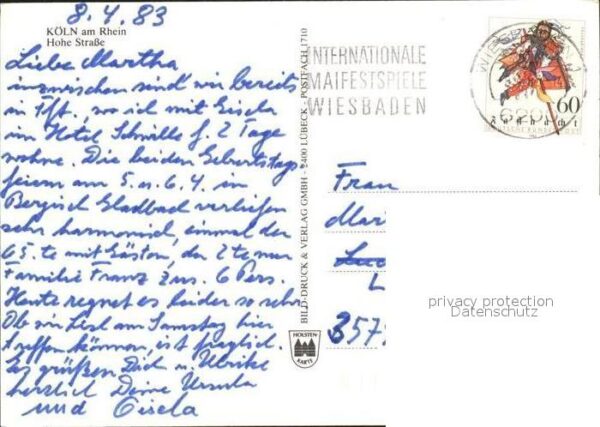 8.4.83
KÖLN am Rhein
Hohe Straße
Liebe Martha
inzwischen sind wir bereits
in Fft, wo ich mit Gisela
im Hotel Schwille f. 2 Tage
wohne. Die beiden Geburtstags
feiern am 5. u. 6.4. in
Bergisch Gladbach verliefen
sehr harmonisch, einmal der
65.te mit Gästen, der 2te nur
Familie Franz zus. 6 Pers.
Heute regnet es leider so sehr.
Ob wir Lisl am Samstag hier
treffen können, ist fraglich.
Es grüßen Dich u. Ulrike
herzlich Deine Ursula
und Gisela
BILD-DRUCK & VERLAG GMBH · 2400 LÜBECK · POSTFACH 1710
HOLSTEN
KARTE
INTERNATIONALE
MAIFESTSPIELE
WIESBADEN
WIESBADEN
6200
60
DEUTSCHE BUNDESPOST
Frau
Mar
L
357
privacy protection
Datenschutz